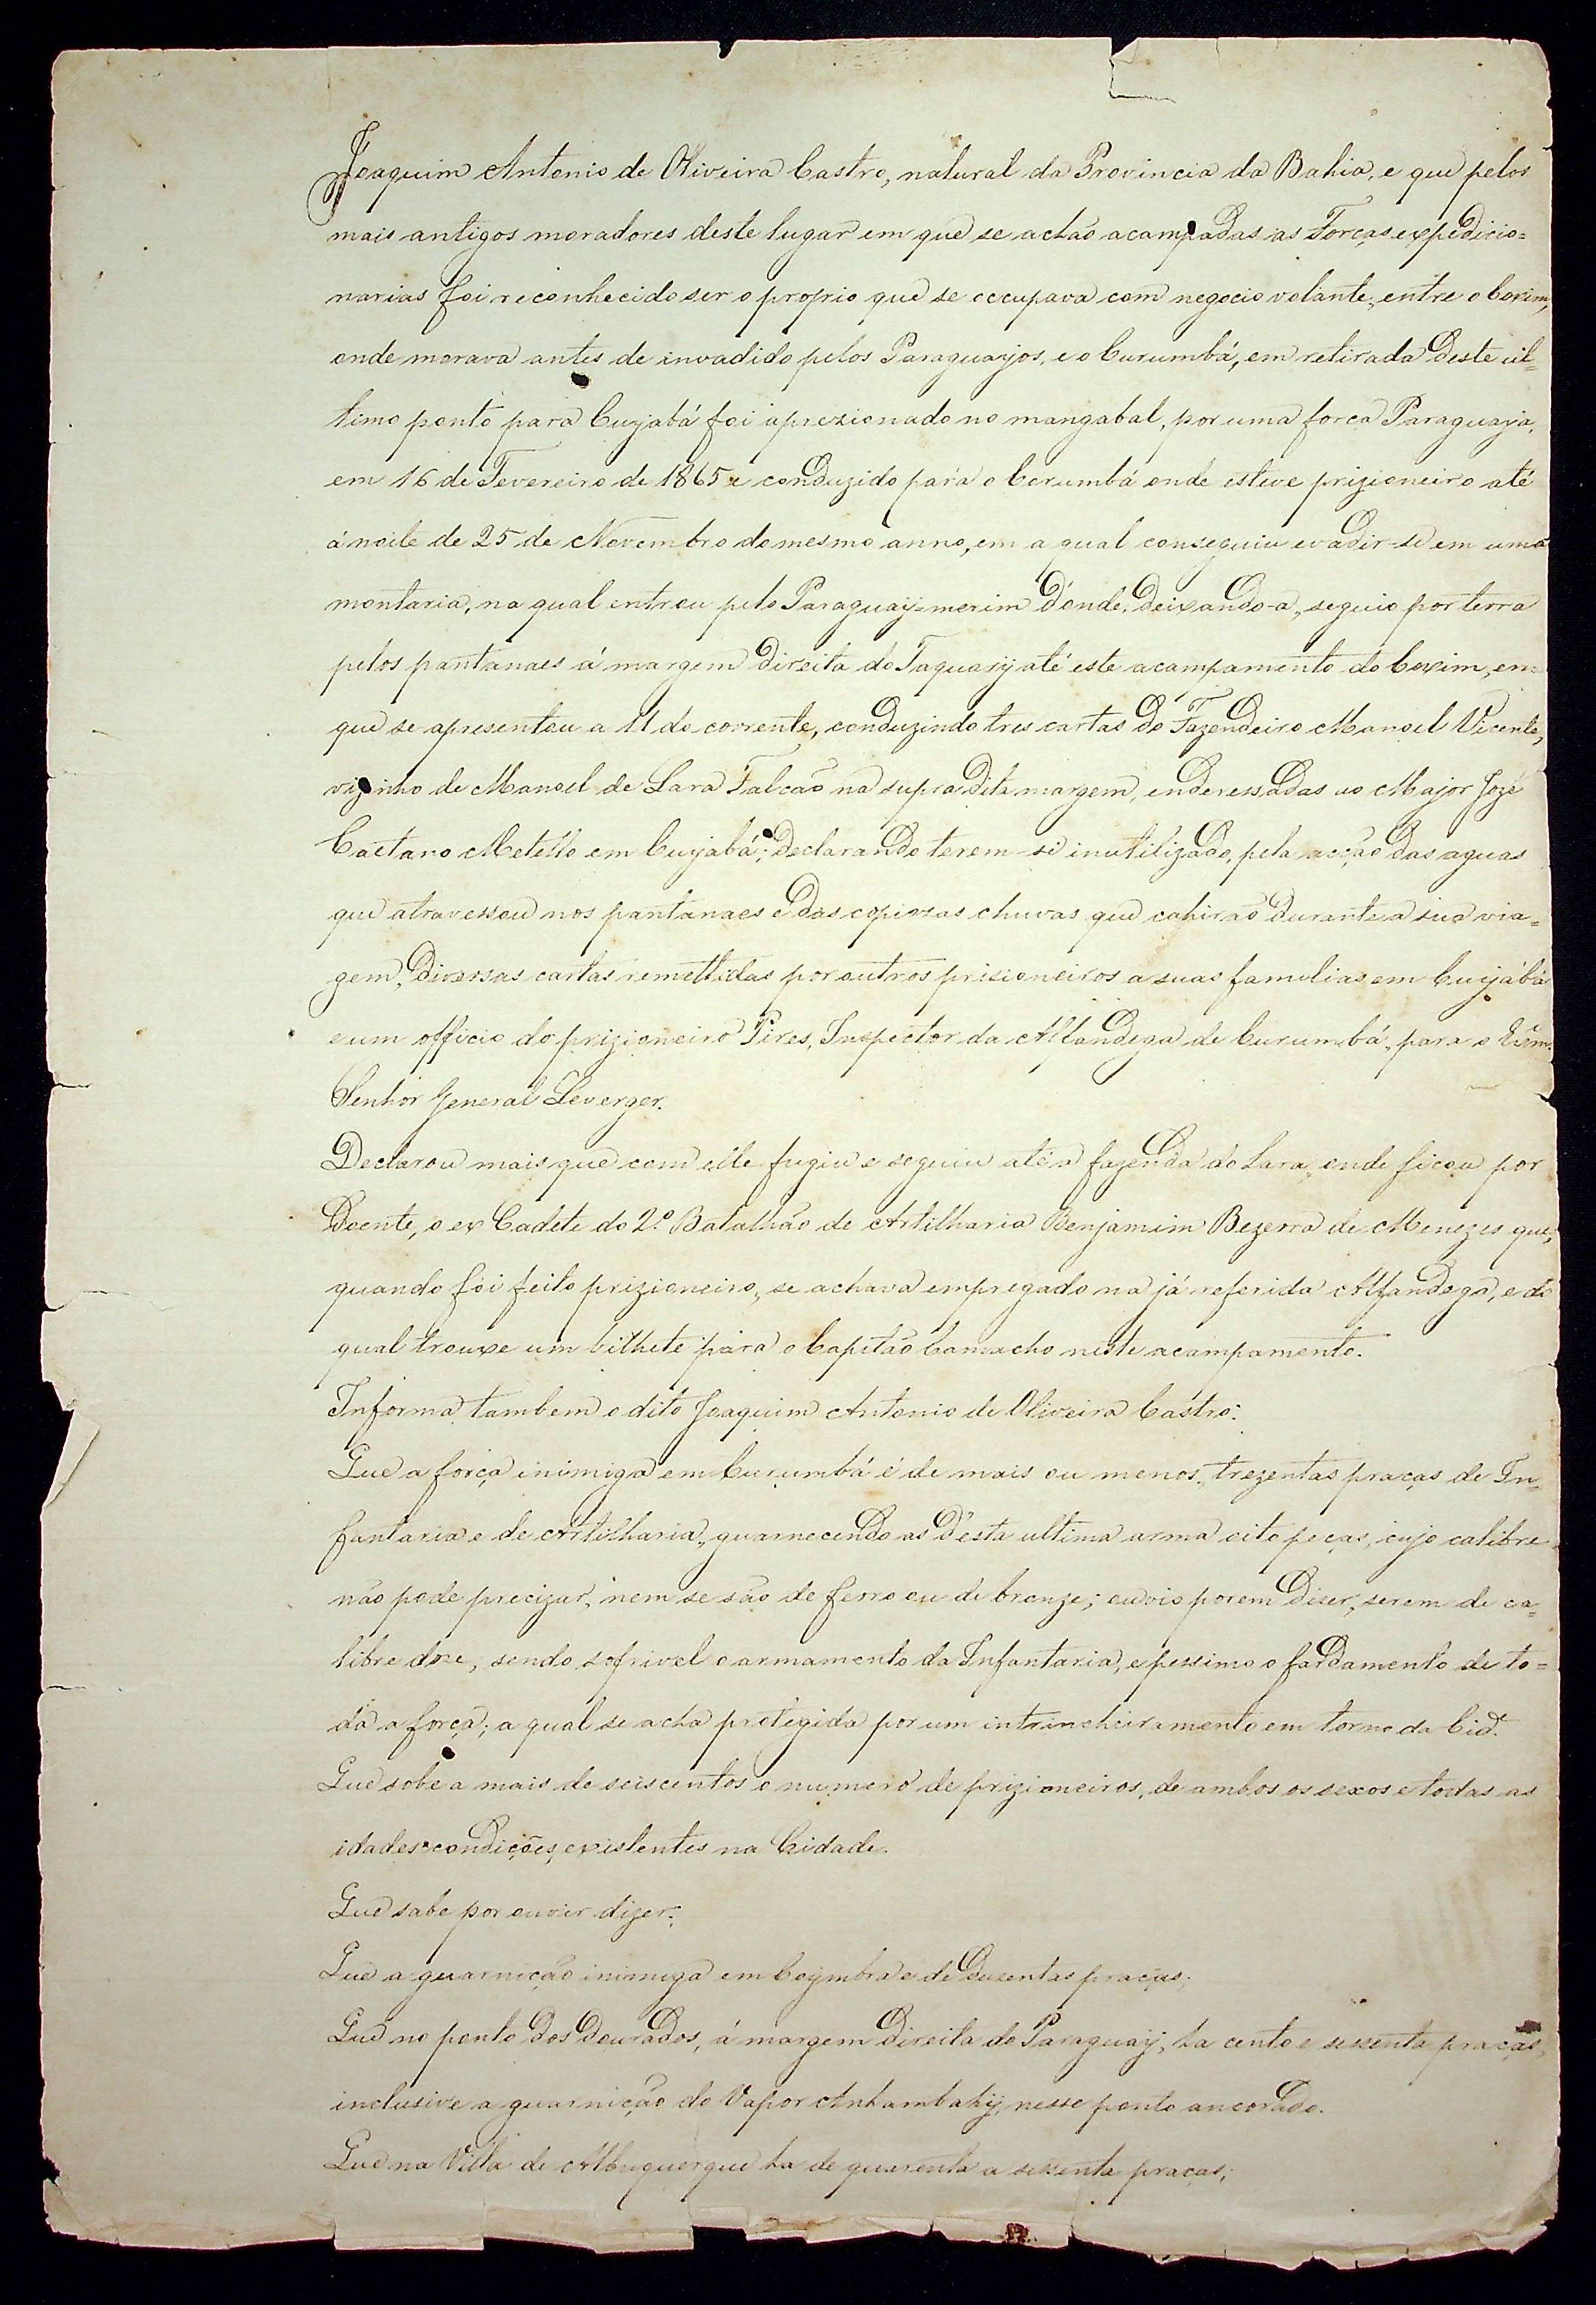 Joaquim Antonio de Oliveira Castro, natural da Provincia da Bahia, e que pelos
mais antigos moradores deste lugar em que se achão acampadas as Forças expedicio=
narias foi reconhecido ser o proprio que se occupava com negocio volante, entre o Coxim,
onde morava antes de invadido pelos Paraguayos, e o Curumbá, em retirada deste ul=
timo ponto para Cuyabá foi aprezionado no mangabal, por uma força Paraguaya,
em 16 de Fevereiro de 1865 e conduzido para o Corumbá onde esteve prizioneiro até
á noite de 25 de Novembro do mesmo anno, em a qual conseguiu evadir-se em uma
montaria, na qual entrou pelo Paraguay-merim d'onde, deixando-a, seguio por terra
pelos pantanaes á margem direita do Taquary até este acampamento do Coxim, em
que se apresentou a 11 do corrente, conduzindo tres cartas do Fazendeiro Manoel Vicente,
vizinho de Manoel de Lara Falcão na supradita margem, enderessadas ao Major Jozé
Caetano Metello em Cuyabá; declarando terem-se inutilizado, pela acção das aguas
que atravessou nos pantanaes e das copiozas chuvas que cahirão durante a sua via=
gem, diversas cartas remettidas por outros prisioneiros a suas familias em Cuyábá
e um officio do prizioneiro Pires, Inspector da Alfandega de Curumbá, para o Exm.
Senhor General Leverger.
Declarou mais que com elle fugiu e seguiu até a fazenda do Lara, onde ficou por
doente, o ex Cadete do 2.º Batalhão de Artilharia Benjamim Bezerra de Menezes que,
quando foi feito prizioneiro, se achava empregado na já referida Alfandega, e do
qual trouxe um bilhete para o Capitão Camacho neste acampamento.
Informa tambem o dito Joaquim Antonio de Oliveira Castro:
Que a força inimiga em Curumbá é de mais ou menos, trezentas praças de In=
fantaria e de Artilharia, guarnecendo as d'esta ultima arma oito peças, cujo calibre
não pode precizar, nem se são de ferro ou de bronze; ouvio porem diser, serem de ca=
libre doze, sendo sofrivel o armamento da Infantaria, e pessimo o fardamento de to=
da a força; a qual se acha protegida por um intrincheiramento em torno da Cid.ᵉ
Que sobe a mais de seiscentos o numero de prizioneiros, de ambos os sexos e todas as
idades e condições, existentes na Cidade.
Que sabe por ouvir dizer:
Que a guarnição inimiga em Coymbra é de dusentas praças;
Que no ponto dos Dourados, á margem direita do Paraguay, ha cento e sessenta praças,
inclusive a guarnição do Vapor Anhambahy, nesse ponto ancorado.
Que na Villa de Albuquerque ha de quarenta a sessenta praças;